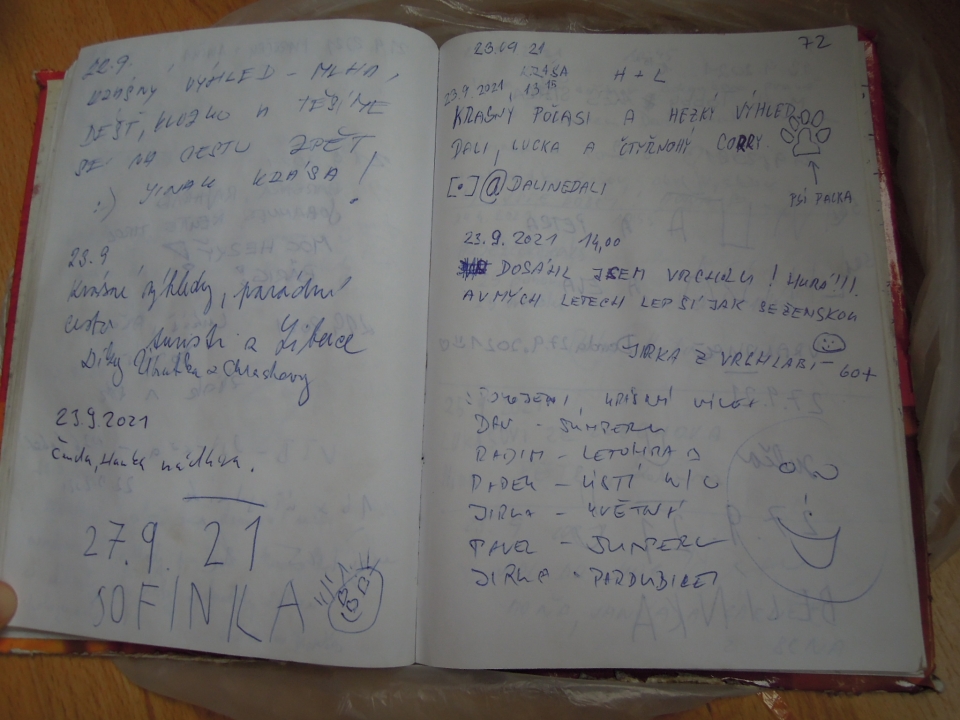 22.9.
ÚŽASNÝ VÝHLED – MLHA,
DÉŠŤ, HOVNO A TĚŠÍME
SE NA CESTU ZPĚT
:) JINAK KRÁSA!
23.9
krásné výhledy, parádní
cesta turisti z Liberce
Díky
23.9.2021
Hanka nádhera.
27.9. 21
SOFINKA
72
23.09 21
KRÁSA H + L
23.9.2021, 13.15
KRÁSNÝ POČASÍ A HEZKÝ VÝHLED
DALI, LUCKA A ČTYŘNOHÝ CORRY
PSÍ PACKA
@DALINEDALI
23.9.2021 14,00
DOSÁHL JSEM VRCHOLU! HURÁ!!!
A V MÝCH LETECH LEPŠÍ JAK SE ŽENSKOU
JIRKA Z VRCHLABÍ – 60+
- ŠUMPERK
RADIM – LETOHRAD
RADEK – ÚSTÍ N/O
JIRKA – KVĚTNÁ
PAVEL – ŠUMPERK
JIRKA - PARDUBICE